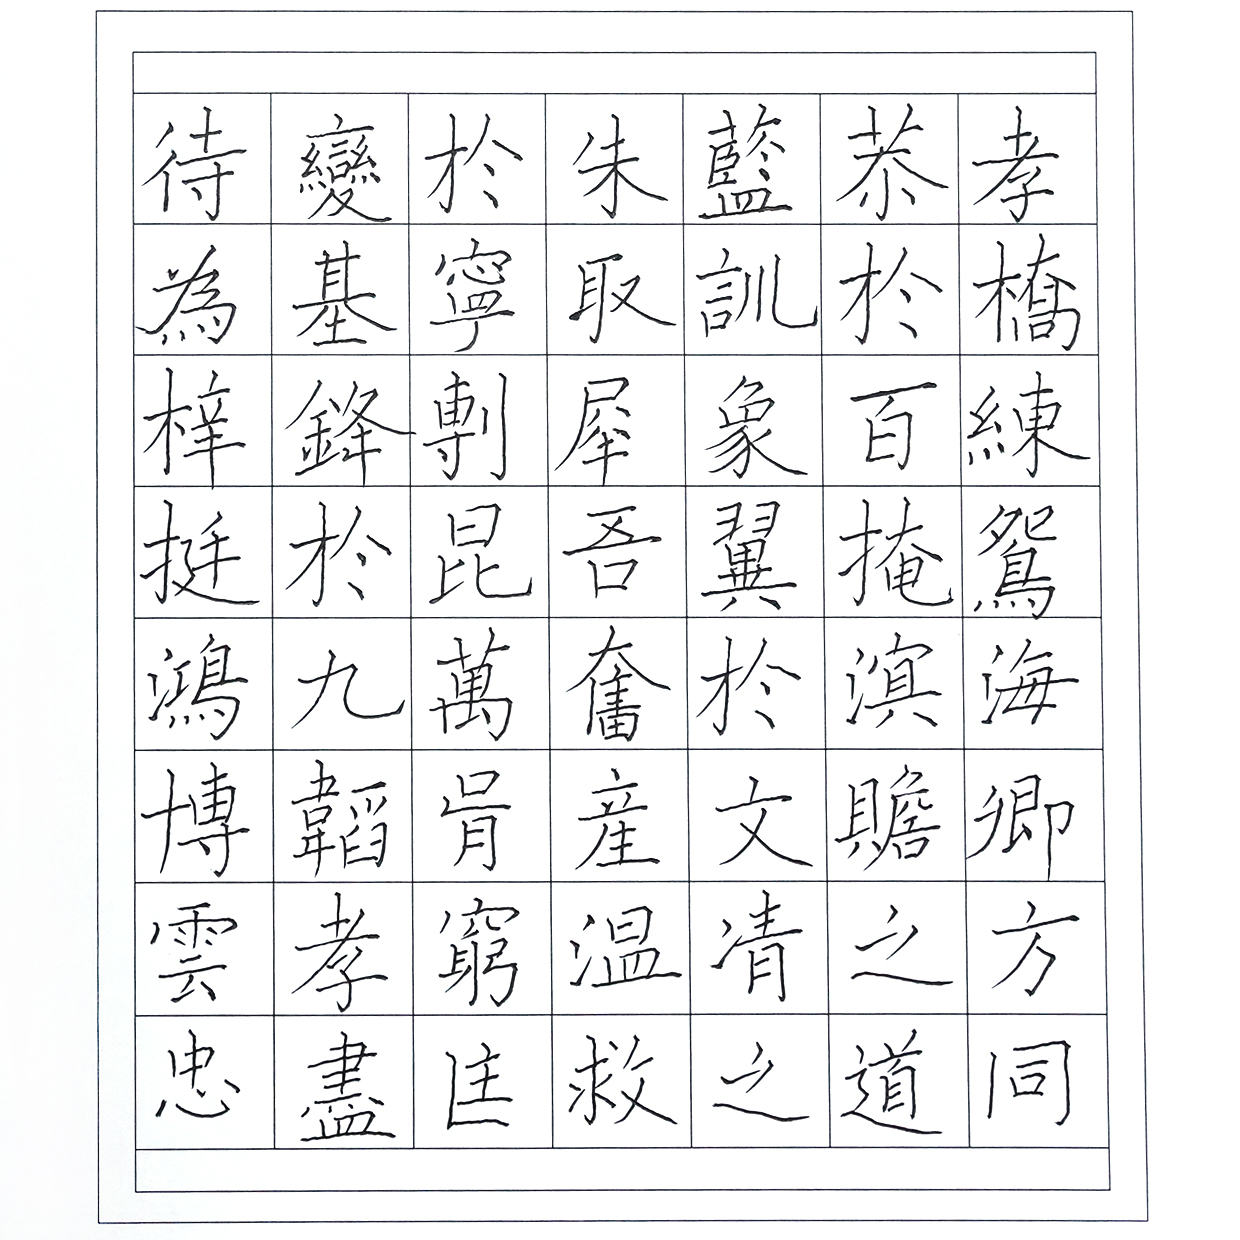 待變於朱藍恭孝
為基寧取訓於橋
梓鋒剸犀象百練
挺於昆吾翼掩鴛
鴻九萬奮於溟海
博韜胥産文贍卿
雲孝窮温凊之方
忠盡匡救之道同